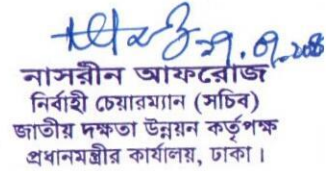 নাসরীন আফরোজ
নির্বাহী চেয়ারম্যান (সচিব)
জাতীয় দক্ষতা উন্নয়ন কর্তৃপক্ষ
প্রধানমন্ত্রীর কার্যালয়, ঢাকা।